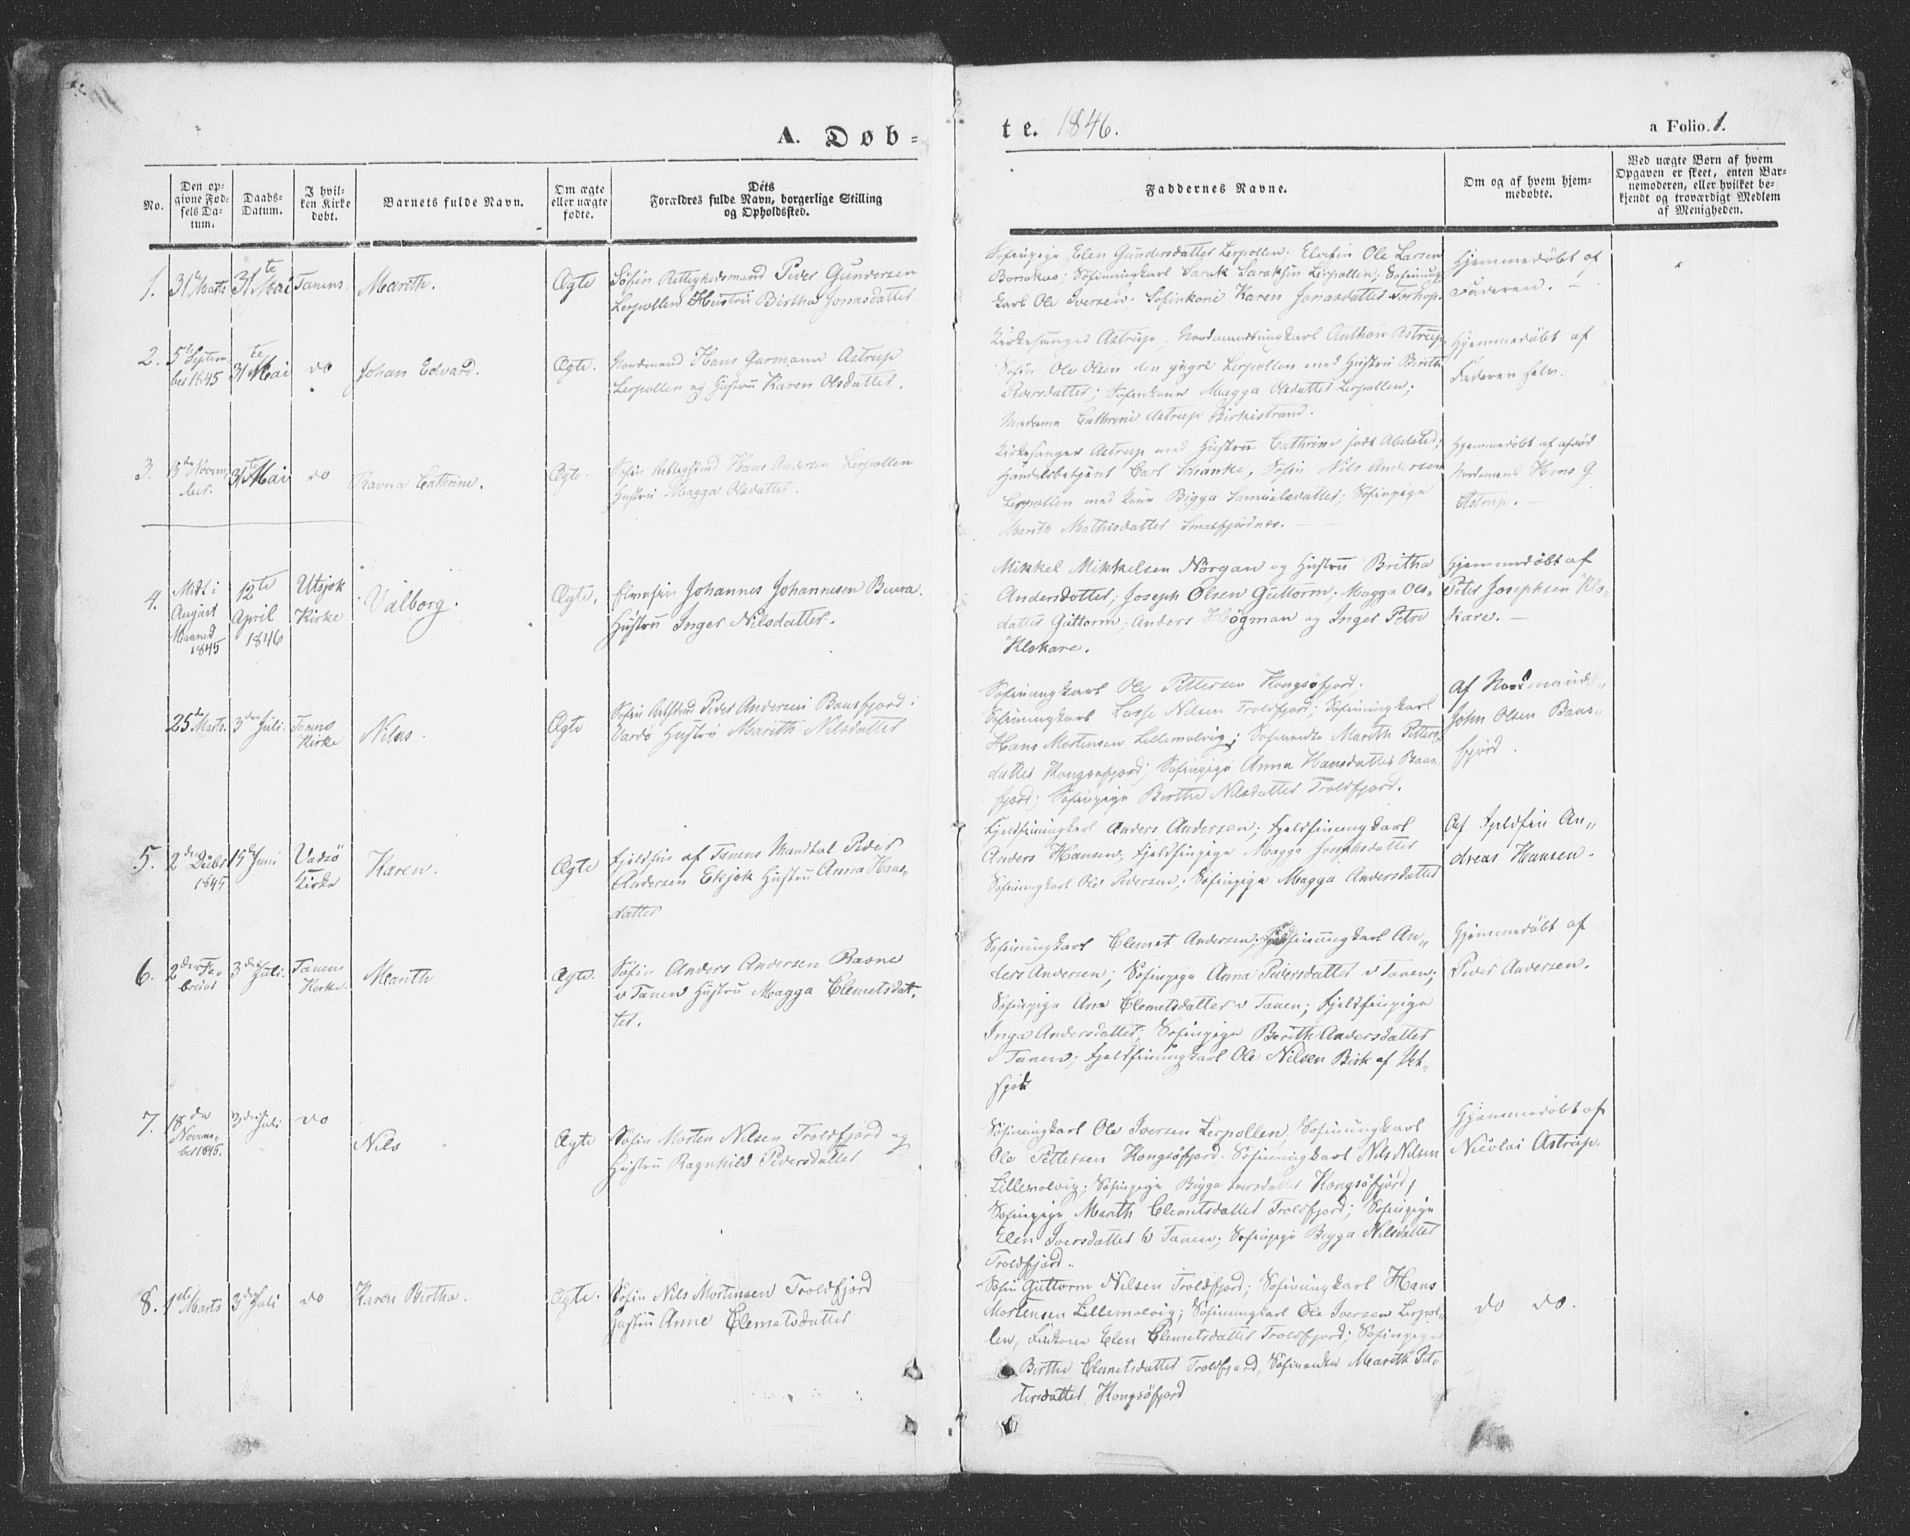 A. Døb=
te. 1846.
a Folio. 1.
No.
Den op=
givne Fød=
sels Da=
tum.
Daabs=
Datum.
I hvil=
ken Kirke
døbt.
Barnets fulde Navn.
Om ægte
eller uægte
fødte.
Dets
Forældres fulde Navn, borgerlige Stilling
og Opholdsted.
Faddernes Navne.
Om og af hvem hjem=
medøbte.
Ved uægte Børn af hvem
Opgaven er skeet, enten Bar=
nemoderen, eller hvilket be=
kjendt og troværdigt Medlem
af Menigheden.
1.
31 Marts
31te Mai
Tanens
Marith.
Ægte
Søfin Rettighedsmand Peder Gundersen
Lerpollen Hustru Birtha Jonasdatter
Søfinpige Elen Gundersdatter Lerpollen; Elvefin Ole Larsen
Søfinungkarl Sarak Saraksen Lerpollen; Søfinung=
karl Ole Iversen; Søfinkone Karen Jonasdatter
Hjemmedøbt af
Faderen. —
2.
5te Septem
ber 1845
31te Mai
do
Johan Edvard.
Ægte.
Nordmand Hans Garmann Astrup
Lerpollen og Hustru Karen Olsdatter.
Kirkesanger Astrup; Nordmandsungkarl Anthon Astrup
Søfin Ole Olsen den yngre Lerpollen med Hustru Berith
Pedersdatter; Søfinkone Magga Olsdatter Lerpollen;
Madame Cathrine Astrup Birkestrand.
Hjemmedøbt af
Faderen selv.
3.
15de Novem
ber.
31te Mai
do
Ravna Cathrine.
Ægte.
Søfin Hans Andersen Lerpollen
Hustru Magga Olsdatter.
Kirkesanger Astrup med Hustru Cathrine født
Handelsbetjent Carl Schanke, Søfin Nils Andersen
Lerpollen med Kone Bigga Samuelsdatter; Søfinpige
Marith Mathisdatter Smalfjordnes. —
Hjemmedøbt af
Nordmand Hans G.
Astrup. —
4.
Midt i
August
Maaned
1845
12te
April
1846
Utsjok
Kirke
Valborg.
Ægte.
Elvefin Johannes Johannesen
Hustru Inger Nilsdatter.
Mikkel Mikkelsen Nørgan og Hustru Britha
Andersdatter; Joseph Olsen Guttorm; Magga Ols=
datter Guttorm; Anders Høgman og Inger Petri
Klokare.
Hjemmedøbt af
Peter Josephsen Klo=
kare. —
25de Marts.
3die Juli.
Tanens
Kirke
Nils.
Ægte
Søfin Peder Andersen Baasfjord i
Vardø Hustru Marith Nilsdatter
Søfinungkarl Ole Pettersen Kongsøfjord;
Søfinungkarl Lasse Nilsen Troldfjord; Søfinungkarl
Hans Mortensen Lillemolvig; Søfinenke Marith Petters=
datter Kongsøfjord; Søfinpige Anna Hansdatter Baas=
fjord; Søfinpige Birthe Nilsdatter Troldfjord.
Af Nordmand
John Olsen Baas=
fjord.
5.
1845
15de Juni
Vadsø
Kirke
Karen.
Ægte
Fjeldfin af Tanens Mandtal Peder
Andersen Ekjok Hustru Anna Hans=
datter
Fjeldfinungkarl Anders Andersen; Fjeldfinungkarl
Anders Hansen, Fjeldfinpige Magga Josephsdatter
Søfinungkarl Ole Pedersen; Søfinpige Magga Andersdatter
Af Fjeldfin An=
dreas Hansen.
6.
2den Fe
bruar
3die Juli.
Tanens
Kirke.
Marith
Ægte.
Søfin Anders Andersen Ravne
v Tanen Hustru Magga Clemetsdat=
ter.
Søfinungkarl Clemet Andersen; Søfinungkarl An=
ders Andersen; Søfinpige Anna Pedersdatter v Tanen;
Søfinpige Ane Clemetsdatter v Tanen; Fjeldfinpige
Inga Andersdatter; Søfinpige Berith Andersdatter
v Tanen; Fjeldfinungkarl Ole Nilsen Bisk af Ut=
sjok
Hjemmedøbt af
Peder Andersen.
7.
18de
Novem=
ber 1845.
3die Juli
do
Nils
Ægte
Søfin Morten Nilsen Troldfjord og
Hustru Ragnhild Pedersdatter
Søfinungkarl Ole Iversen Lerpollen, Søfinungkarl
Ole Pettersen Kongsøfjord. Søfinungkarl Nils Nilsen
Lillemolvig; Søfinpige Bigga Iversdatter Kongsøfjord,
Søfinpige Marith Clemetsdatter Troldfjord; Søfinpige
Elen Iversdatter v Tanen; Søfinpige Bigga Nilsdatter
Troldfjord.
Hjemmedøbt af
Nicolai Astrup.
8.
1ste Marts
3die Juli
do
Karen Birtha.
Ægte.
Søfin Nils Mortensen Troldfjord
Hustru Anne Clemetsdatter
Søfin Guttorm Nilsen Troldfjord; Søfinungkarl Hans
Mortensen Lillemolvig; Søfinungkarl Ole Iversen Lerpol=
len, Finkone Elen Clemetsdatter Troldfjord; Søfinpige
Birthe Clemetsdatter Troldfjord, Søfinenke Marith Pet=
tersdatter Kongsøfjord
do do.